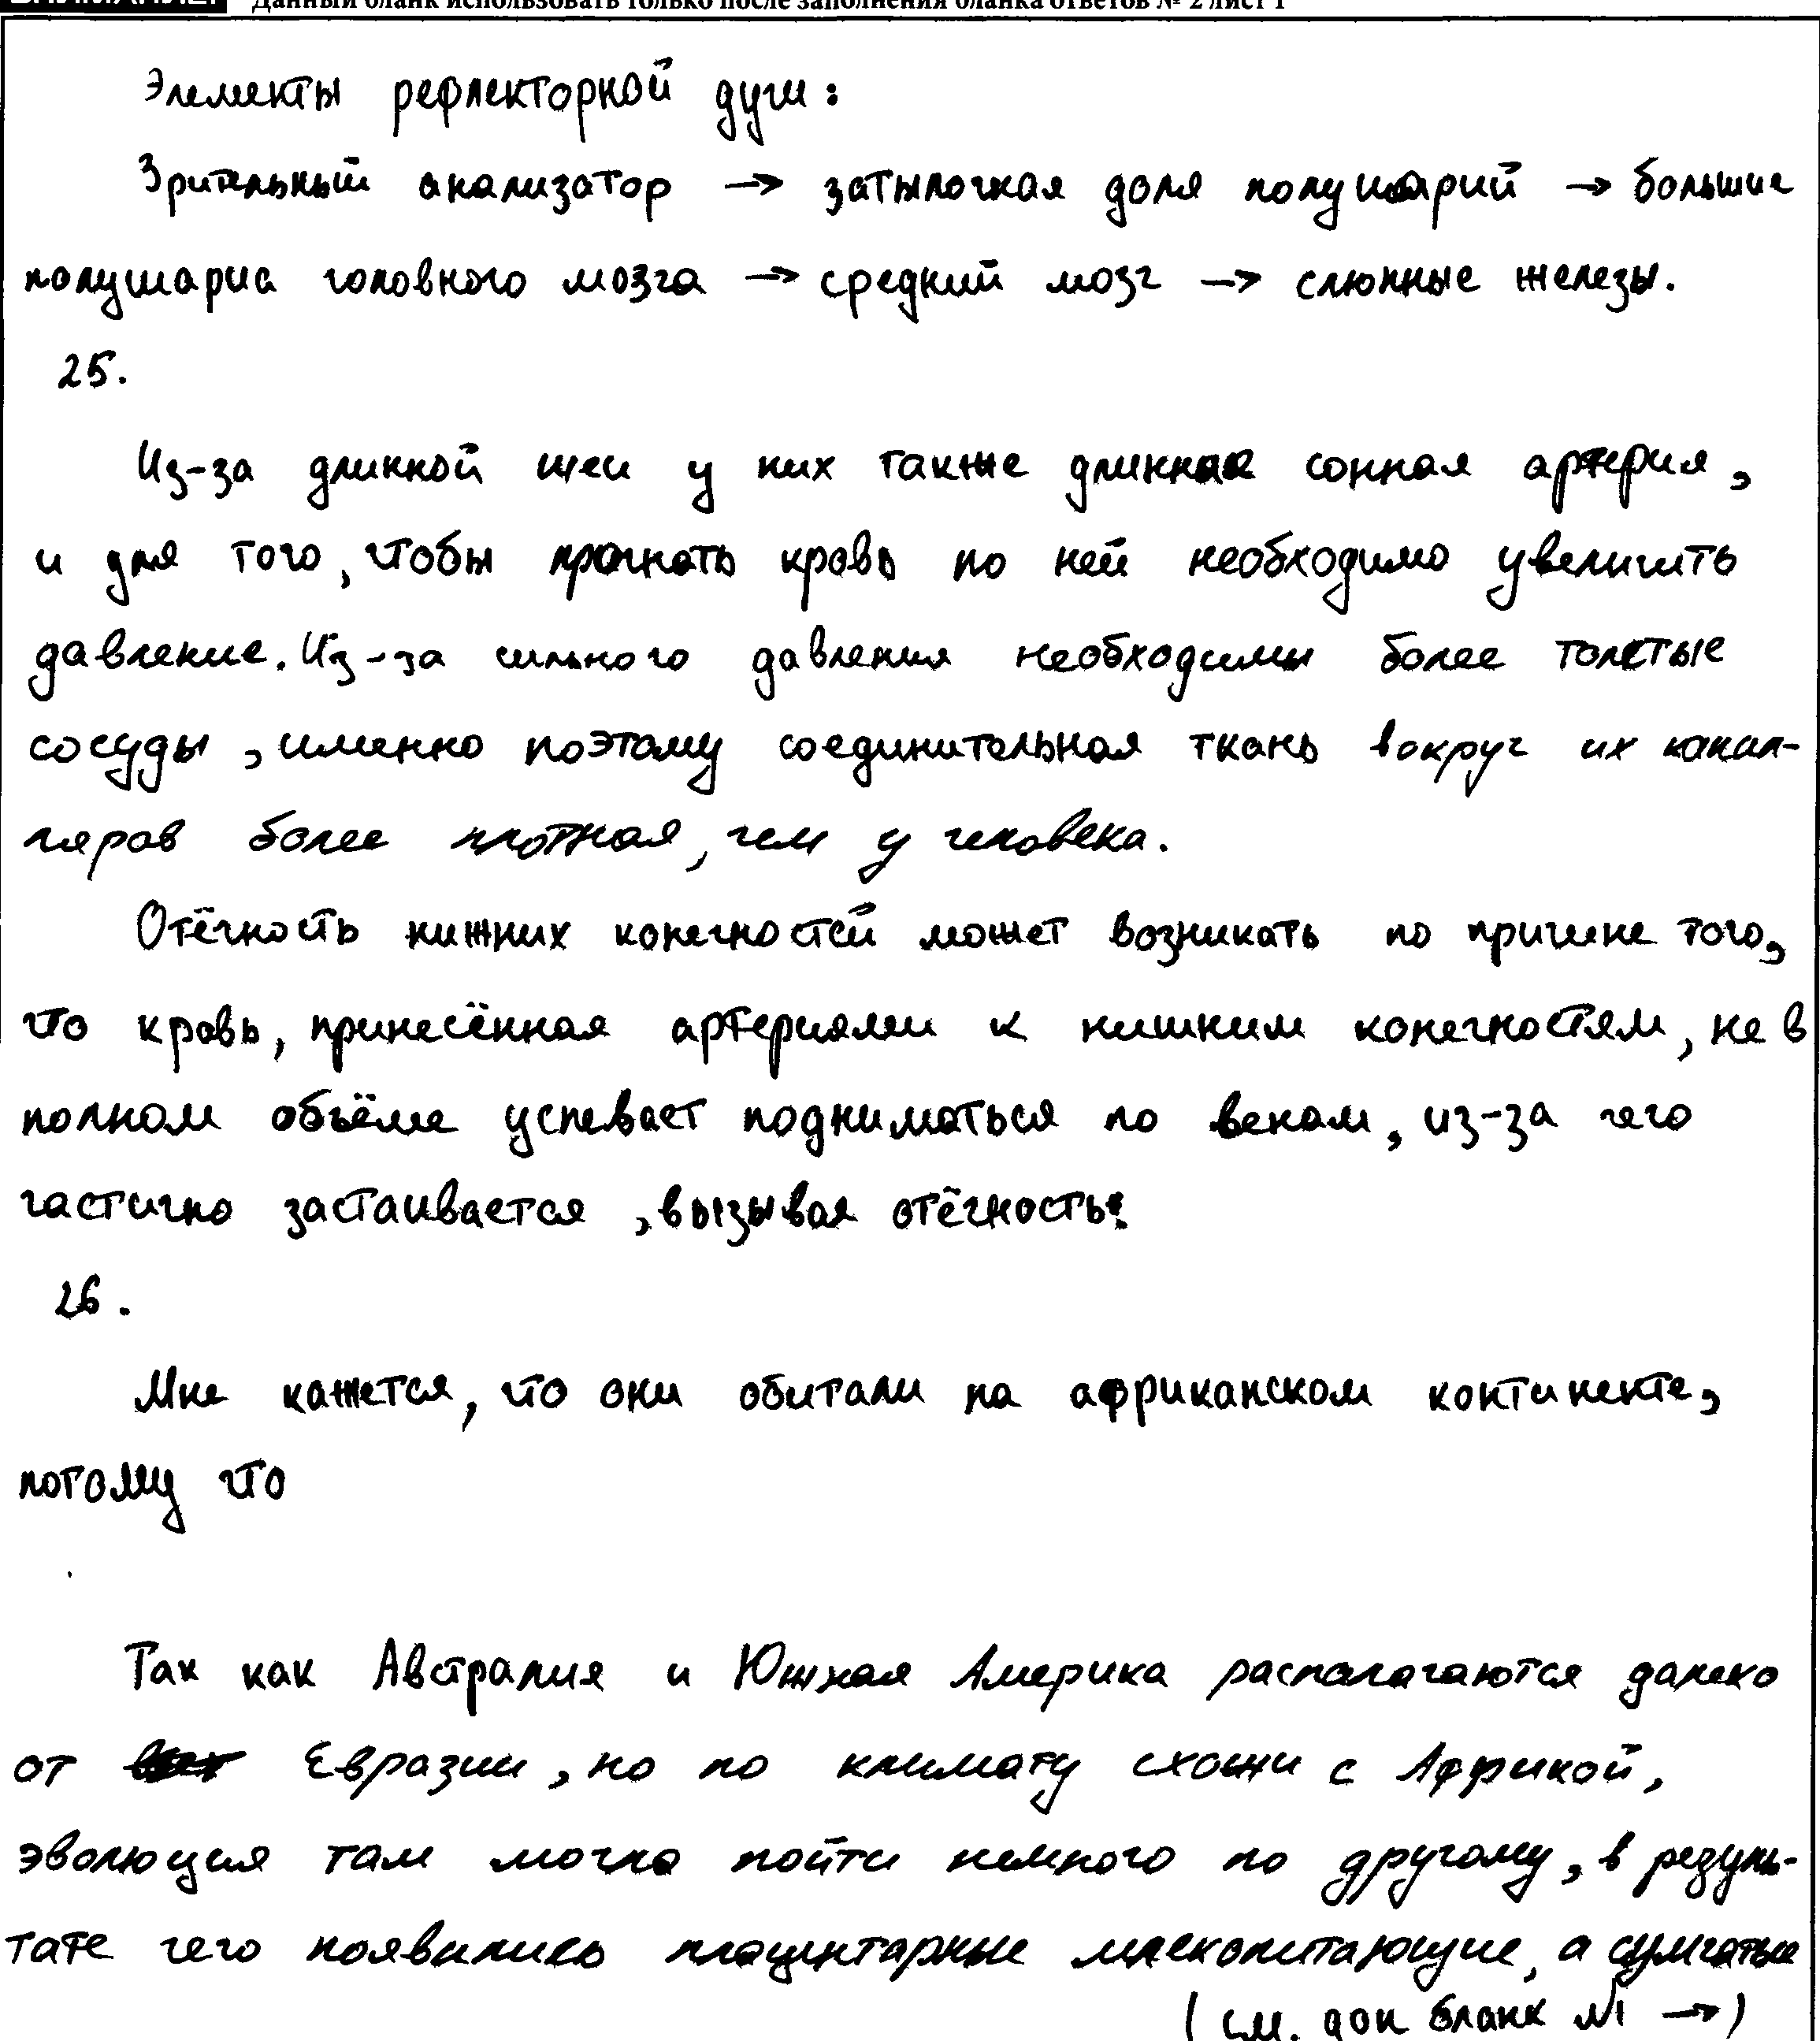 Данный бланк использовать только после заполнения бланка ответов № 2 лист 1
Элементы рефлекторной дуги:
Зрительный анализатор → затылочная доля полушарий → большие
полушария головного мозга → средний мозг → слюнные железы.
25.
Из-за длинной шеи у них также длинная сонная артерия,
и для того, чтобы прогнать кровь по ней необходимо увеличить
давление. Из-за сильного давления необходимы более толстые
сосуды, именно поэтому соединительная ткань вокруг их капил-
ляров более плотная, чем у человека.
Отёчность нижних конечностей может возникать по причине того,
что кровь, принесённая артериями к нишним конечностям, не в
полном объёме успевает подниматься по венам, из-за чего
частично застаивается, вызывая отёчность.
26.
Мне кажется, что они обитали на африканском континенте,
потому что
Так как Австралия и Южная Америка располагаются далеко
от Евразии, но по климату схожи с Африкой,
эволюция там могла пойти немного по другому, в резуль-
тате чего появились плацентарные млекопитающие, а сумчатые
(см. доп бланк №1 →)